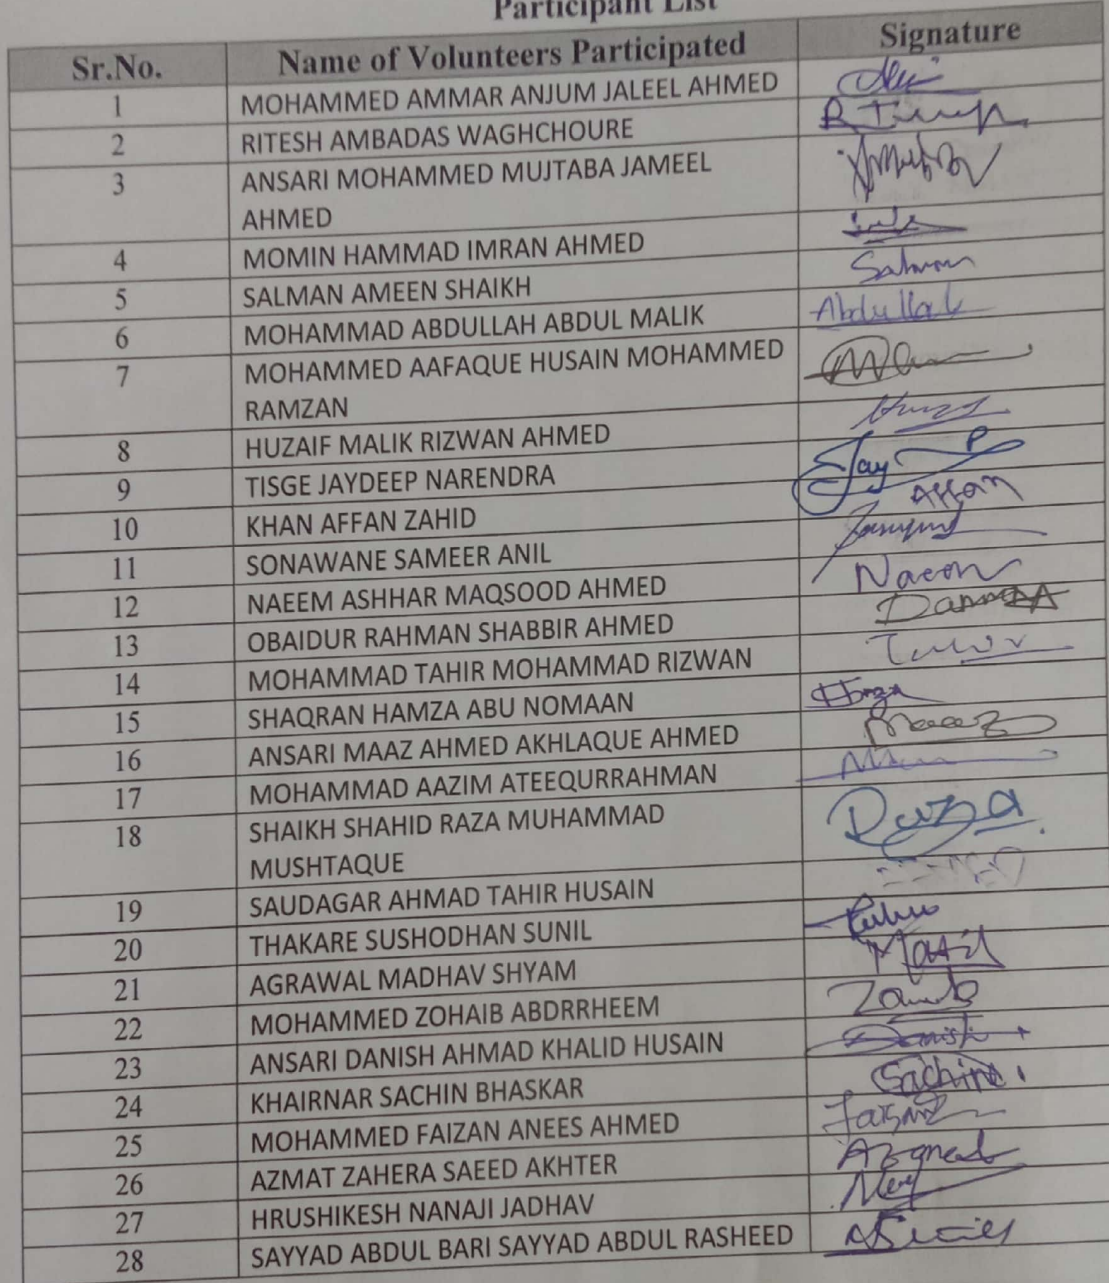 Participant List
Sr.No. Name of Volunteers Participated Signature
1 MOHAMMED AMMAR ANJUM JALEEL AHMED
2 RITESH AMBADAS WAGHCHOURE
3 ANSARI MOHAMMED MUJTABA JAMEEL
AHMED
4 MOMIN HAMMAD IMRAN AHMED
5 SALMAN AMEEN SHAIKH Salman
6 MOHAMMAD ABDULLAH ABDUL MALIK Abdullah
7 MOHAMMED AAFAQUE HUSAIN MOHAMMED
RAMZAN
8 HUZAIF MALIK RIZWAN AHMED
9 TISGE JAYDEEP NARENDRA Jay
10 KHAN AFFAN ZAHID Affan
11 SONAWANE SAMEER ANIL
12 NAEEM ASHHAR MAQSOOD AHMED Naeem
13 OBAIDUR RAHMAN SHABBIR AHMED
14 MOHAMMAD TAHIR MOHAMMAD RIZWAN
15 SHAQRAN HAMZA ABU NOMAAN
16 ANSARI MAAZ AHMED AKHLAQUE AHMED
17 MOHAMMAD AAZIM ATEEQURRAHMAN
18 SHAIKH SHAHID RAZA MUHAMMAD Raza
MUSHTAQUE
19 SAUDAGAR AHMAD TAHIR HUSAIN
20 THAKARE SUSHODHAN SUNIL
21 AGRAWAL MADHAV SHYAM
22 MOHAMMED ZOHAIB ABDRRHEEM
23 ANSARI DANISH AHMAD KHALID HUSAIN Danish
24 KHAIRNAR SACHIN BHASKAR Sachin
25 MOHAMMED FAIZAN ANEES AHMED
26 AZMAT ZAHERA SAEED AKHTER
27 HRUSHIKESH NANAJI JADHAV
28 SAYYAD ABDUL BARI SAYYAD ABDUL RASHEED